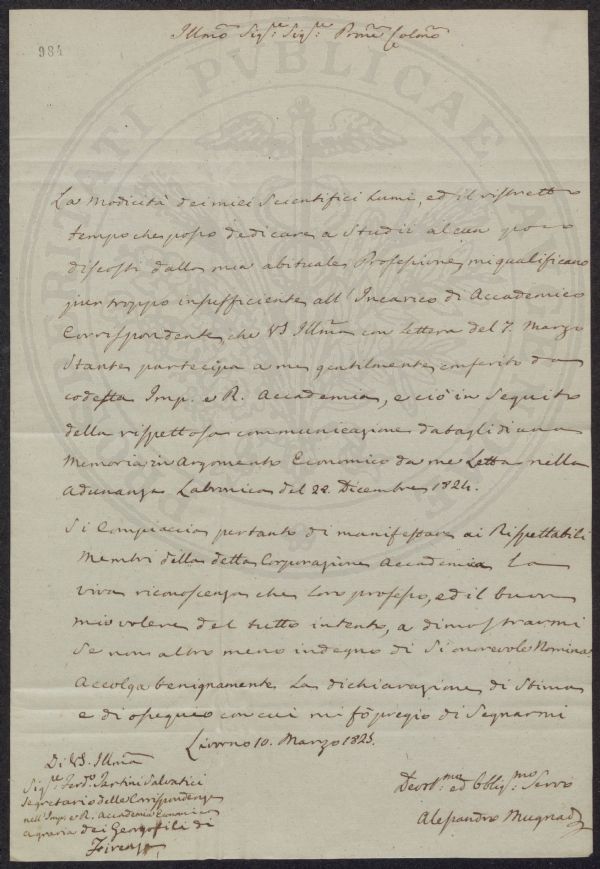 984
Illmo Sigre Sigre Prone Colmo
La Modicità dei miei Scientifici Lumi, ed il ristretto
tempo che posso dedicare a Studii alcun poco
discosti dalla mia abituale Professione, mi qualificano
pur troppo insufficiente all' Incarico di Accademico
Corrispondente, che VS Illma con Lettera del 7. Marzo
Stante partecipa a me gentilmente conferito da
codesta Imp. e R. Accademia, e ciò in Seguito
della rispettosa comunicazione datagli di una
Memoria in Argomento Economico da me Letta nella
Adunanza Labronica del 22. Dicembre 1824.
Si Compiaccia pertanto di manifestare ai Rispettabili
Membri della detta Corporazione Accademica La
viva riconoscenza che Loro professo, ed il buon
mio volere del tutto intento, a dimostrarmi
Se non altro meno indegno di Si onorevole Nomina
Accolga benignamente La dichiarazione di Stima
e di ossequio con cui mi fò pregio di Segnarmi
Livorno 10. Marzo 1825.
Di VS. Illma
Sigre Ferdo Tartini Salvatici
Segretario delle Corrispondenze
nell' Imp. e R. Accademia Economico
agraria dei Georgofili di
Firenze
Devotmo ed Obbligmo Servo
Alessandro Mugnai
PUBLICAE